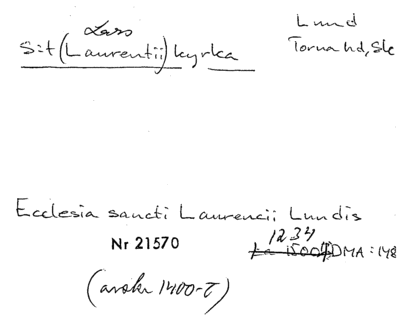 Lars
S:t (Laurentii) kyrka
Lund
Torna hd, Sk
Ecclesia sancti Laurencii Lundis
1234
Nr 21570
DMA:148
(avskr 1400-t)